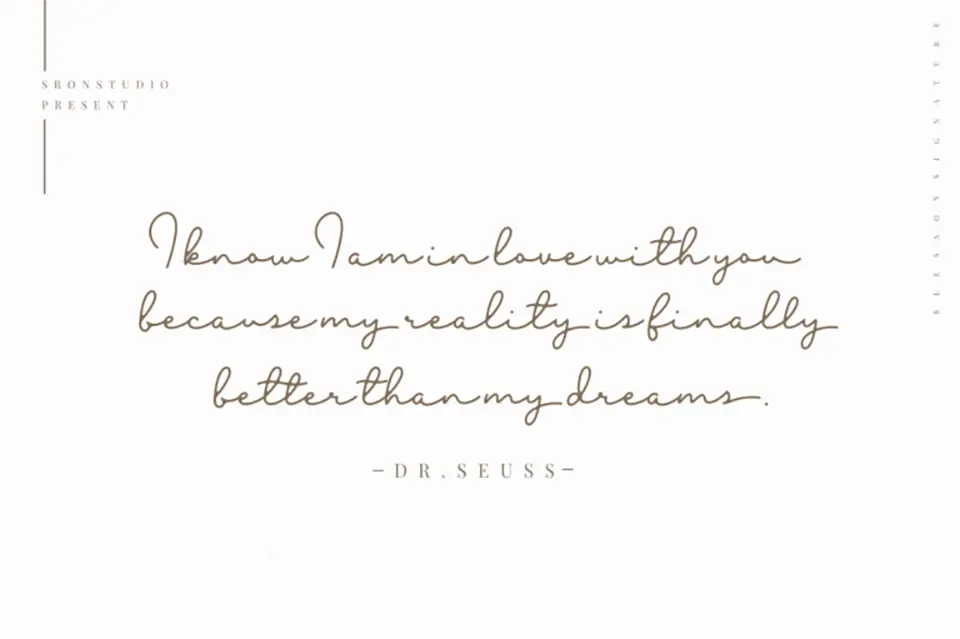 SRONSTUDIO
PRESENT
I know I am in love with you
because my reality is finally
better than my dreams.
-DR.SEUSS-